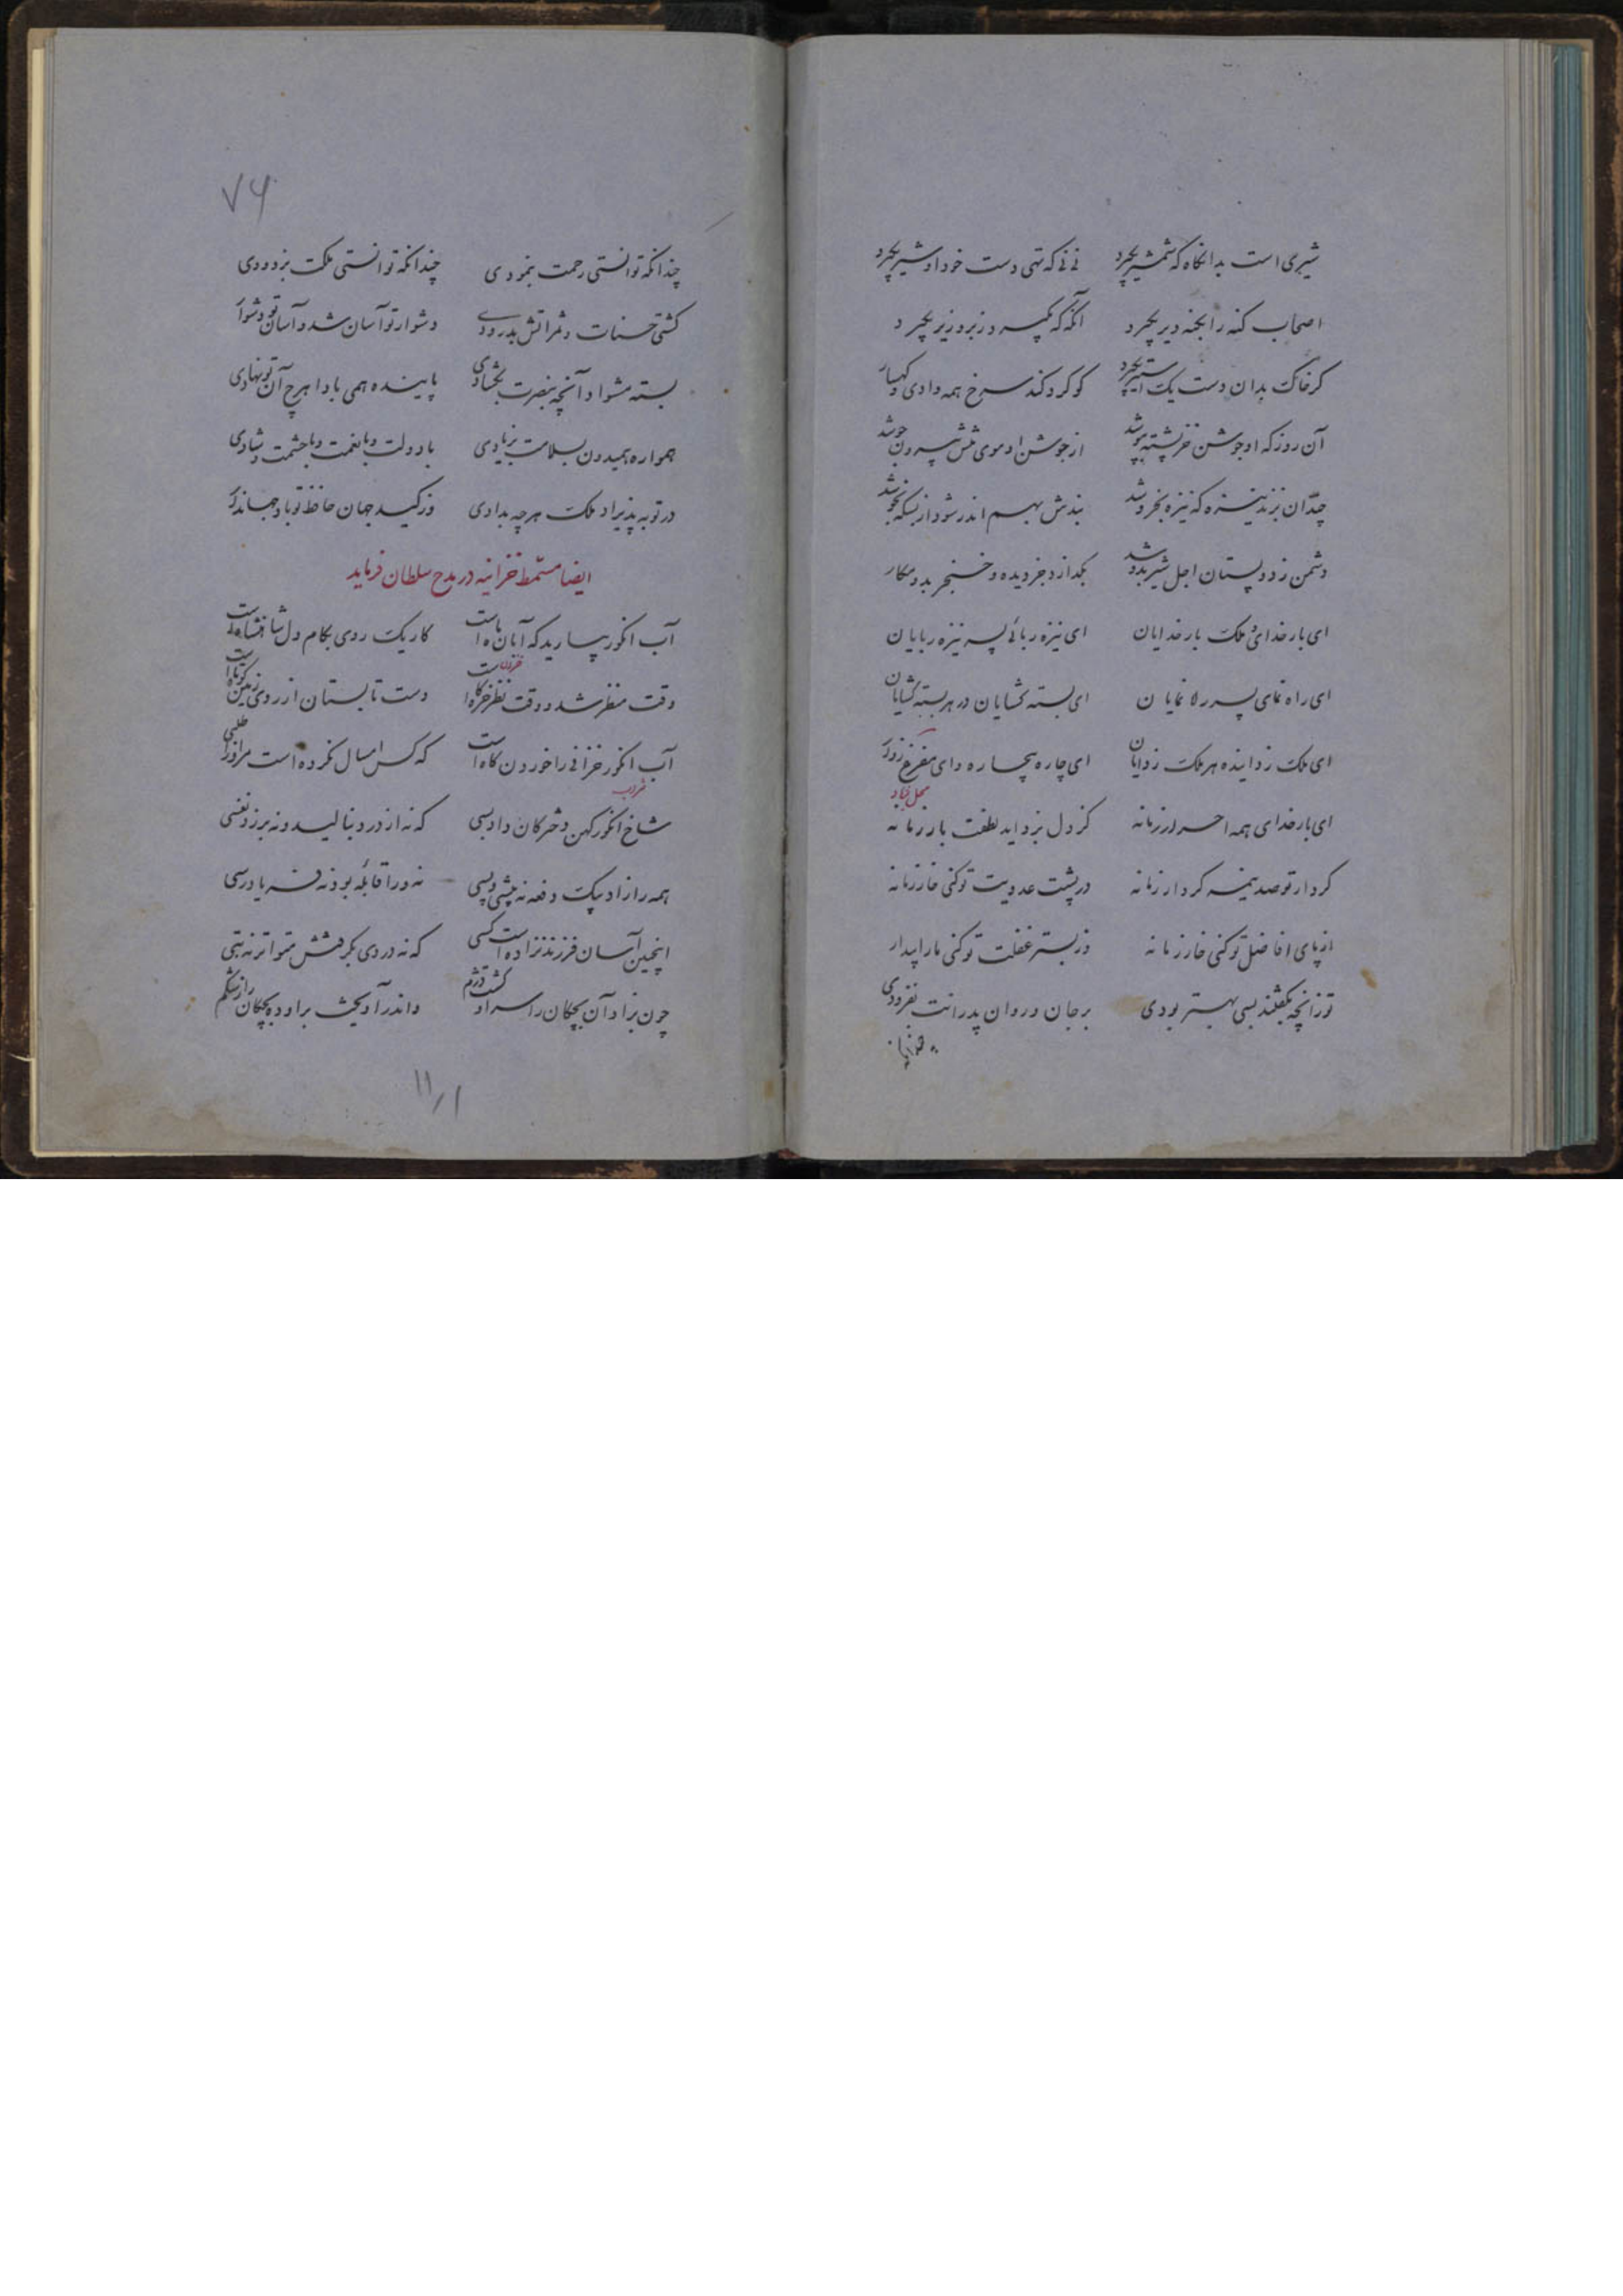 شیری است بدانگاه که شمشیر بگیرد نی نی که تهی دست خود او شیر بگیرد
اصحاب گنه را بگنه دیر بگیرد آنکه که بگیرد و زبر و زیر بگیرد
گر خاک بدان دست یک استیر بگیرد گوگرد کند سرخ همه وادی و کهسار
آن روز که او جوشن خرپشته بپوشد از جوشن او موی تنش بیرون جوشد
چندان بزند نیزه که نیزه بخروشد بندش بهم اندر شود از بسکه بجوشد
دشمن ز دو پستان اجل شیر بدوشد بگدازد جز دیده و خنجر بدو مکار
ای بار خدای و ملک بار خدایان ای نیزه ربای پسر نیزه ربایان
ای راه نمای پسر راه نمایان ای بسته گشایان در هر بسته گشایان
ای ملک زداینده هر ملک زدایان ای چاره بیچاره و ای مفزع زوار
ای بار خدای همه احرار زمانه کز دل بزداید لطفت بار زمانه
کردار تو صد بینم کردار زمانه در پشت عدویت تو کنی خار زمانه
از پای افاضل تو کنی خار زمانه وز بستر غفلت تو کنی ما را بیدار
تو زانچه بگفتند بسی بهتر بودی بر جان و روان پدرانت بفزودی
۷۶
چندانکه توانستی رحمت بنمودی چندانکه توانستی ملکت بزدودی
کشتی حسنات و ثمراتش بدرودی دشوار تو آسان شد و آسان تو دشوار
بسته مشواد آنچه بنصرت بگشادی پاینده همی بادا هرچ آن تو نهادی
همواره همیدون بسلامت بزیادی با دولت و با نعمت و با حشمت و شادی
در توبه پذیراد ملک هرچه بدادی وز کید جهان حافظ تو باد جهاندار
ایضا مسمط خزانیه در مدح سلطان فرماید
آب انگور بیارید که آبان ماه است کار یکروی بکام دل شاهنشاه است
وقت منظر شد و وقت نظر خرگاه است دست تابستان از روی زمین کوتاه است
آب انگور خزانی را خوردن گاه است که کس امسال نکرده است مر او را طلبی
شاخ انگور کهن دخترکان زاد بسی که نه از درد بنالید و نه برزد نفسی
همه را زاد بیک دفعه نه پیشی و پسی نه ورا قابله بود و نه فریاد رسی
اینچنین آسان فرزند نزاده است کسی که نه دردی بگرفتش متواتر نه تبی
چون بزاد آن بچکان را سر او گشت دژم و اندر آویخت براوده بچکان را ز شکم